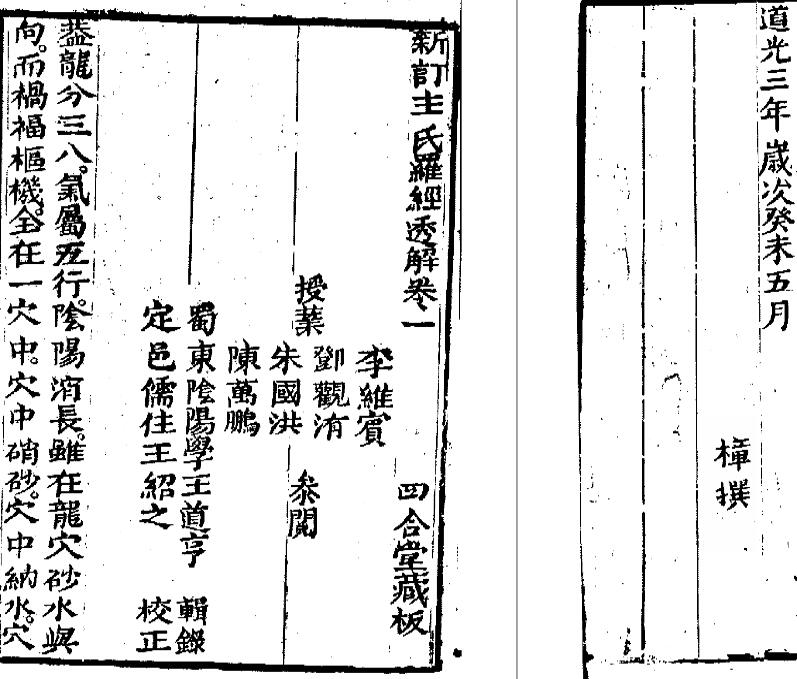 道光三年歲次癸未五月
樟撰
新訂王氏羅經透解卷一
四合堂藏板
李維賓
授業
鄧觀洧
朱國洪
陳萬鵬
叅閱
蜀東陰陽學王道亨 輯錄
定邑儒住王紹之 校正
葢龍分三八。氣屬五行。陰陽消長。雖在龍穴砂水與
向。而禍福樞機。全在一穴中。穴中硝砂。穴中納水。穴